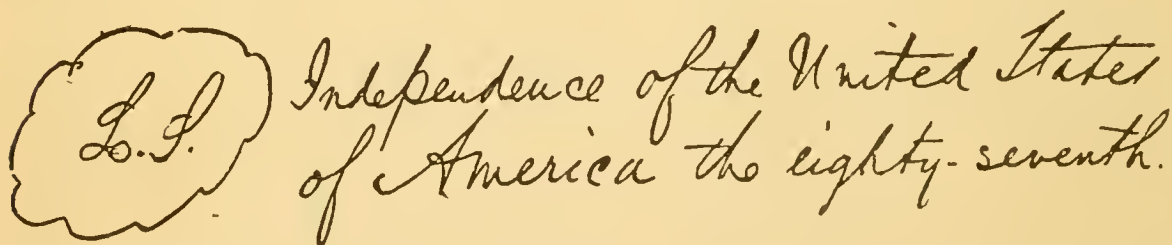 L.S.
Independence of the United States
of America the eighty-seventh.